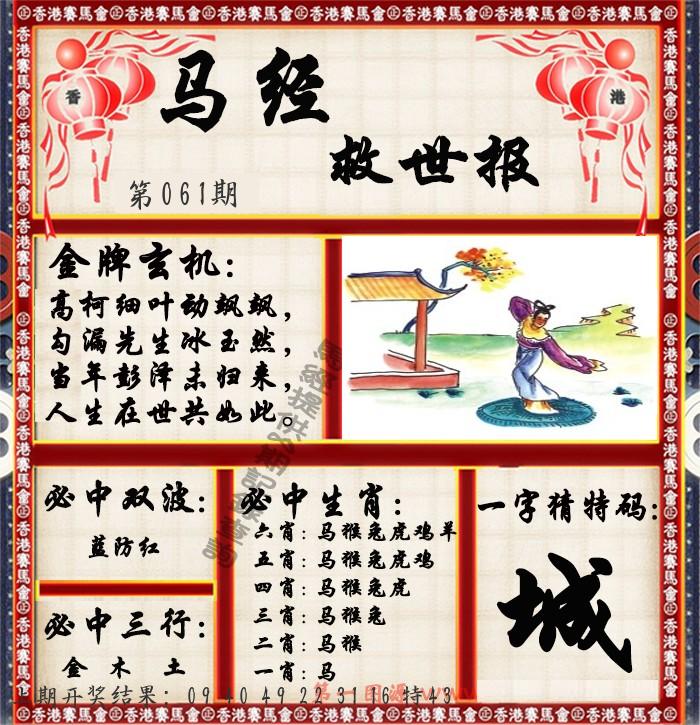 香港賽馬會
香
港
马经
救世报
第061期
金牌玄机：
高柯细叶动飘飘，
勾漏先生冰玉然，
当年彭泽未归来，
人生在世共如此。
必中双波：
蓝防红
必中三行：
金木土
必中生肖：
六肖：马猴兔虎鸡羊
五肖：马猴兔虎鸡
四肖：马猴兔虎
三肖：马猴兔
二肖：马猴
一肖：马
一字猜特码：
城
期开奖结果：09 40 49 22 31 16 特43
第一图源